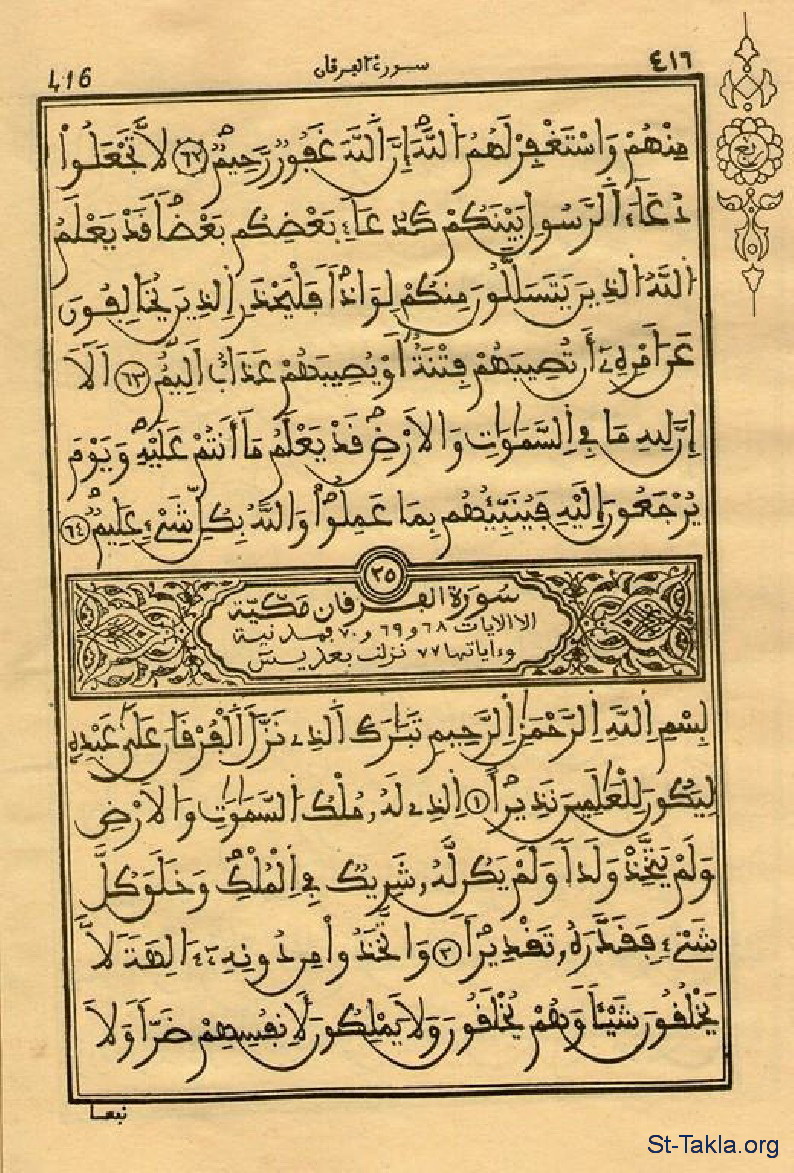 ٤١٦
سورة الفرقان
416
ربع
مِنْهُمْ وَاسْتَغْفِرْ لَهُمُ اللَّهَ إِنَّ اللَّهَ غَفُورٌ رَّحِيمٌ ٦٢ لَّا تَجْعَلُواْ
دُعَآءَ الرَّسُولِ بَيْنَكُمْ كَدُعَآءِ بَعْضِكُم بَعْضاً قَدْ يَعْلَمُ
اللَّهُ الذِينَ يَتَسَلَّلُونَ مِنكُمْ لِوَاذاً فَلْيَحْذَرِ الذِينَ يُخَالِفُونَ
عَنَ اَمْرِهِۦٓ أَن تُصِيبَهُمْ فِتْنَةٌ أَوْ يُصِيبَهُمْ عَذَابٌ اَلِيمٌ ٦٣ اَلَآ
إِنَّ لِلهِ مَا فِي السَّمَٰوَٰتِ وَالاَرْضِ قَدْ يَعْلَمُ مَآ أَنتُمْ عَلَيْهِ وَيَوْمَ
يُرْجَعُونَ إِلَيْهِ فَيُنَبِّئُهُم بِمَا عَمِلُواْ وَاللَّهُ بِكُلِّ شَيْءٍ عَلِيمٌ ٦٤
٢٥
سورة الفرقان مكية
الا الايات ٦٨ و ٦٩ و ٧٠ فمدنية
وءاياتها ٧٧ نزلت بعد يس
بِسْمِ اللَّهِ الرَّحْمَٰنِ الرَّحِيمِ تَبَٰرَكَ الَذِي نَزَّلَ الْفُرْقَانَ عَلَىٰ عَبْدِهِ
لِيَكُونَ لِلْعَٰلَمِينَ نَذِيراً ١ اِلذِي لَهُۥ مُلْكُ السَّمَٰوَٰتِ وَالاَرْضِ
وَلَمْ يَتَّخِذْ وَلَداً وَلَمْ يَكُن لَّهُۥ شَرِيكٌ فِي الْمُلْكِ وَخَلَقَ كُلَّ
شَيْءٍ فَقَدَّرَهُۥ تَقْدِيراً ٢ وَاتَّخَذُواْ مِن دُونِهِۦٓ ءَالِهَةً لَّا
يَخْلُقُونَ شَيْئاً وَهُمْ يُخْلَقُونَ وَلَا يَمْلِكُونَ لِأَنفُسِهِمْ ضَرّاً وَلَا
نفعا
St-Takla.org